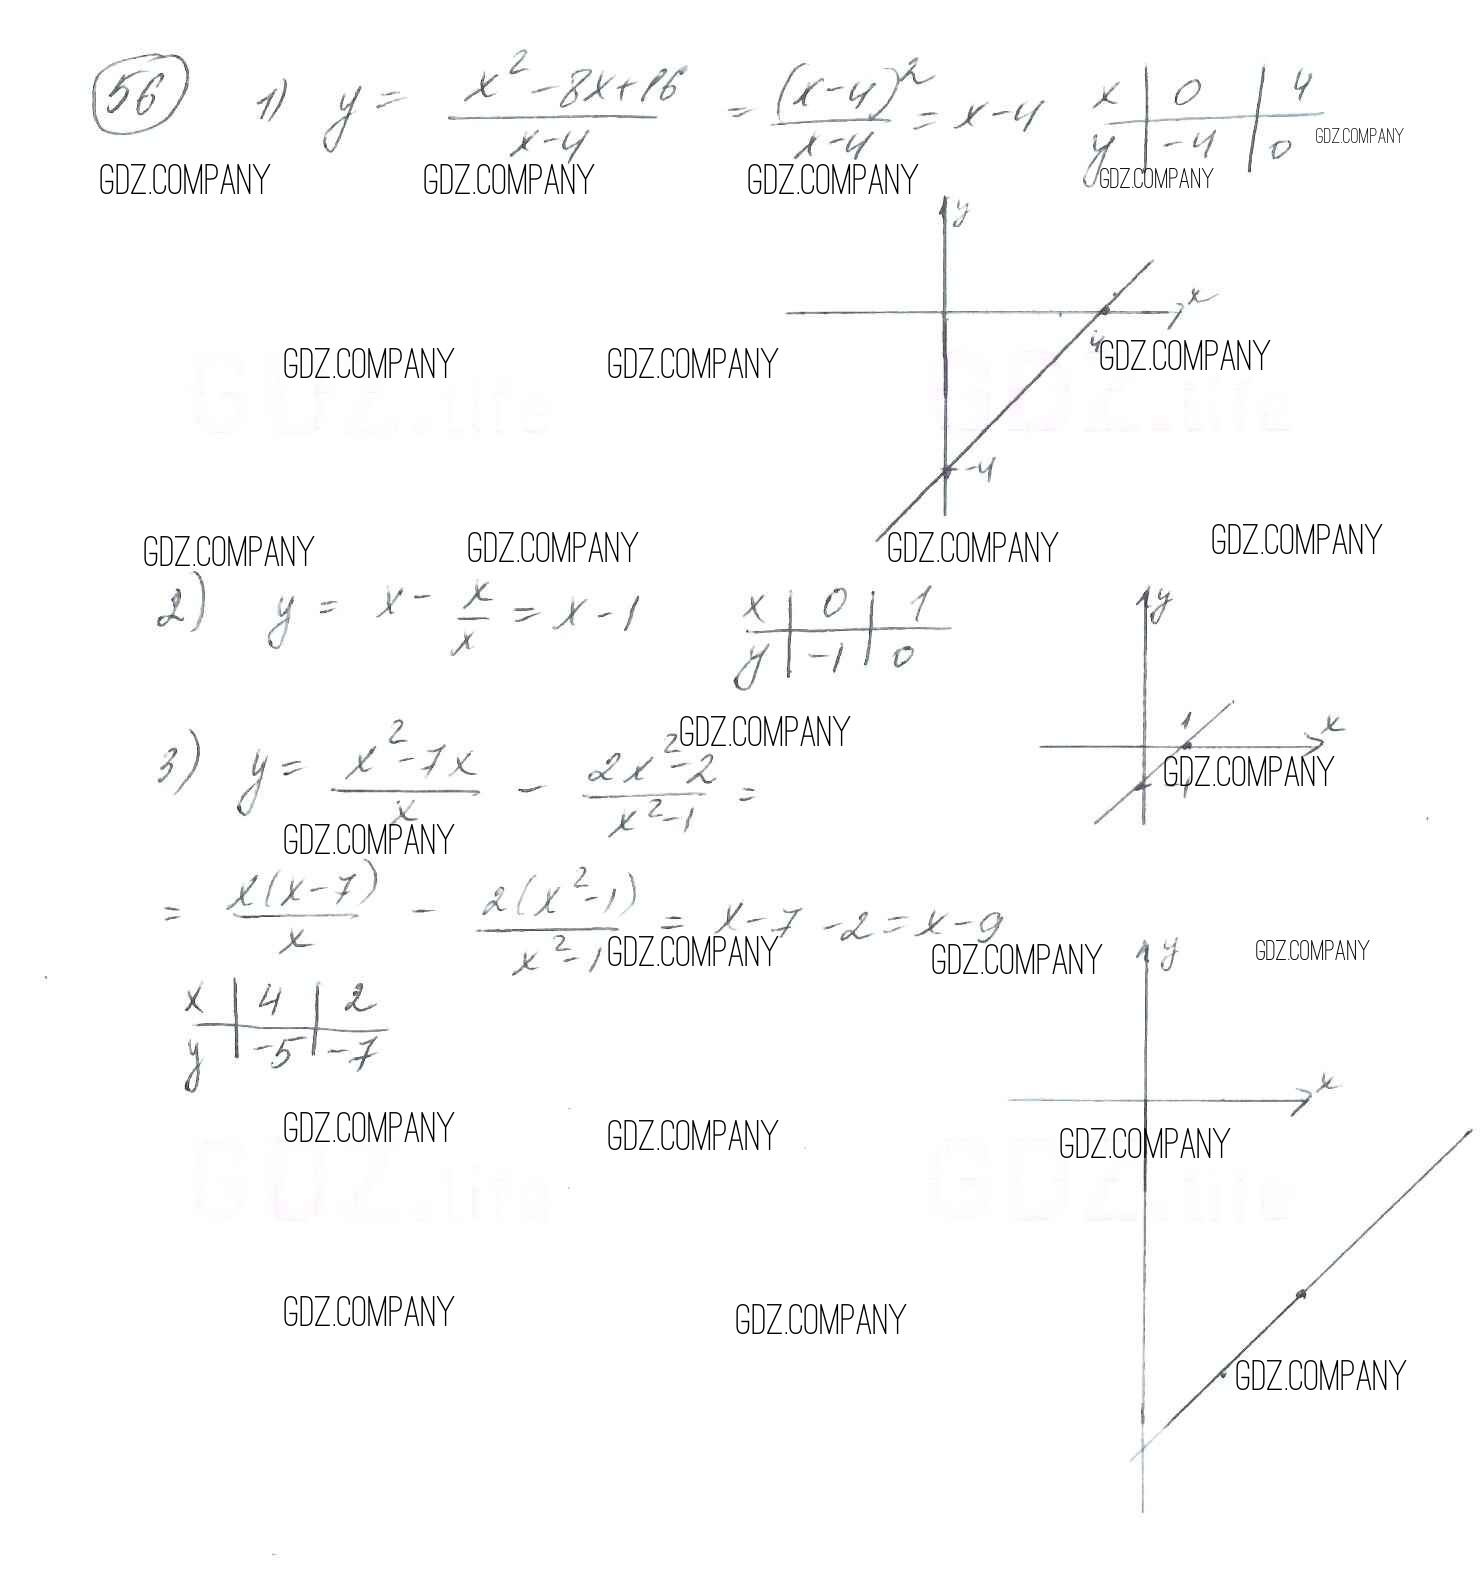 56 1) y = (x² - 8x + 16)/(x - 4) = (x - 4)²/(x - 4) = x - 4 x | 0 | 4
y | -4 | 0
GDZ.COMPANY
GDZ.COMPANY GDZ.COMPANY GDZ.COMPANY GDZ.COMPANY
y
x
4
GDZ.COMPANY GDZ.COMPANY GDZ.COMPANY
GDZ.life GDZ.life
-4
GDZ.COMPANY GDZ.COMPANY GDZ.COMPANY GDZ.COMPANY
2) y = x - x/x = x - 1 x | 0 | 1
y | -1 | 0
y
1 x
GDZ.COMPANY
3) y = (x² - 7x)/x - (2x² - 2)/(x² - 1) =
GDZ.COMPANY
GDZ.COMPANY
= x(x - 7)/x - 2(x² - 1)/(x² - 1) = x - 7 - 2 = x - 9
GDZ.COMPANY GDZ.COMPANY y GDZ.COMPANY
x | 4 | 2
y | -5 | -7
x
GDZ.COMPANY GDZ.COMPANY GDZ.COMPANY
GDZ.life GDZ.life
GDZ.COMPANY GDZ.COMPANY
GDZ.COMPANY